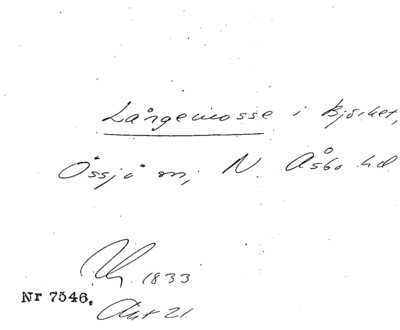 Långemosse i Björket,
Össjö sn, N. Åsbo hd
1833
Nr 7546.
Akt 21.